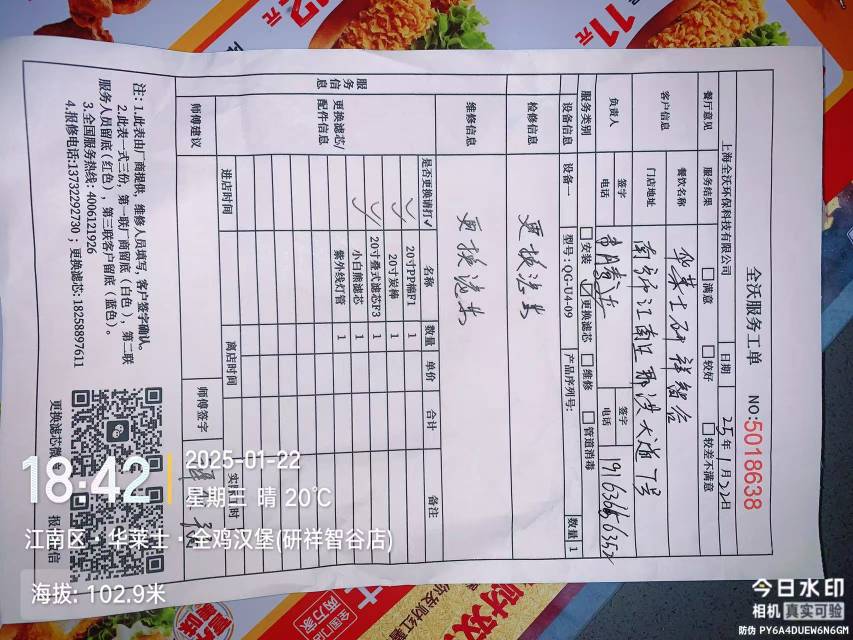 全沃服务工单 NO:5018638
上海全沃环保科技有限公司 日期 25年1月22日
餐厅意见 服务结果 □满意 □较好 □较差不满意
客户信息 餐饮名称 华莱士研祥智谷
门店地址 南宁江南区那洪大道7号
负责人 签字
电话 签字
电话 19163656352
服务类别 □安装 ☑更换滤芯 □维修 □管道消毒
设备信息 设备一 型号:QG-U4-09 产品序列号: 数量 1
检修信息 更换滤芯
维修信息 更换滤芯
服务信息
更换滤芯/配件信息 是否更换请打√ 名称 数量 单价 合计 备注
√ 20寸PP棉F1 1
√ 20寸炭棒 1
√ 20寸叠式滤芯F3 1
√ 小白熊滤芯 1
紫外线灯管 1
进店时间 离店时间 实际工时
师傅建议 师傅签字
注: 1.此表由厂商提供, 维修人员填写, 客户签字确认。
2.此表一式三份, 第一联厂商留底(白色), 第二联
服务人员留底(红色), 第三联客户留底(蓝色)。
3.全国服务热线: 4006121926
4.报修电话:13732292730 ; 更换滤芯: 18258897611
更换滤芯微信
报修微信
11元
12元
18:42
2025-01-22
星期三 晴 20℃
江南区·华莱士·全鸡汉堡(研祥智谷店)
海拔: 102.9米
今日水印
相机 真实可验
防伪 PY6A4DUEW6N6GM